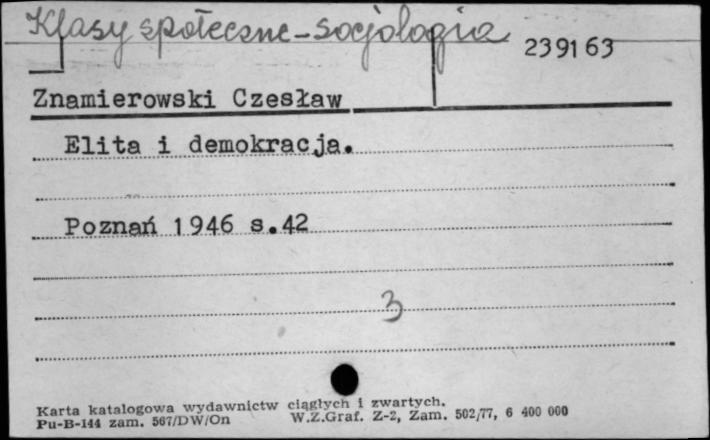 Klasy społeczne - socjologia
239163
Znamierowski Czesław
Elita i demokracja.
Poznań 1946 s.42
3
Karta katalogowa wydawnictw ciągłych i zwartych.
Pu-B-144 zam. 567/DW/On W.Z.Graf. Z-2, Zam. 502/77, 6 400 000